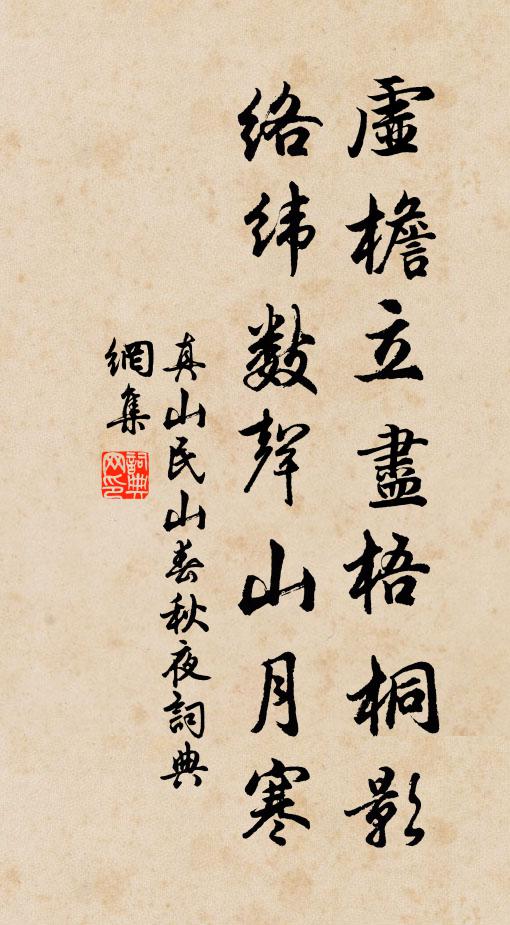 虛檐立盡梧桐影
絡緯數聲山月寒
真山民山春秋夜詞典
網集
詞典
网印